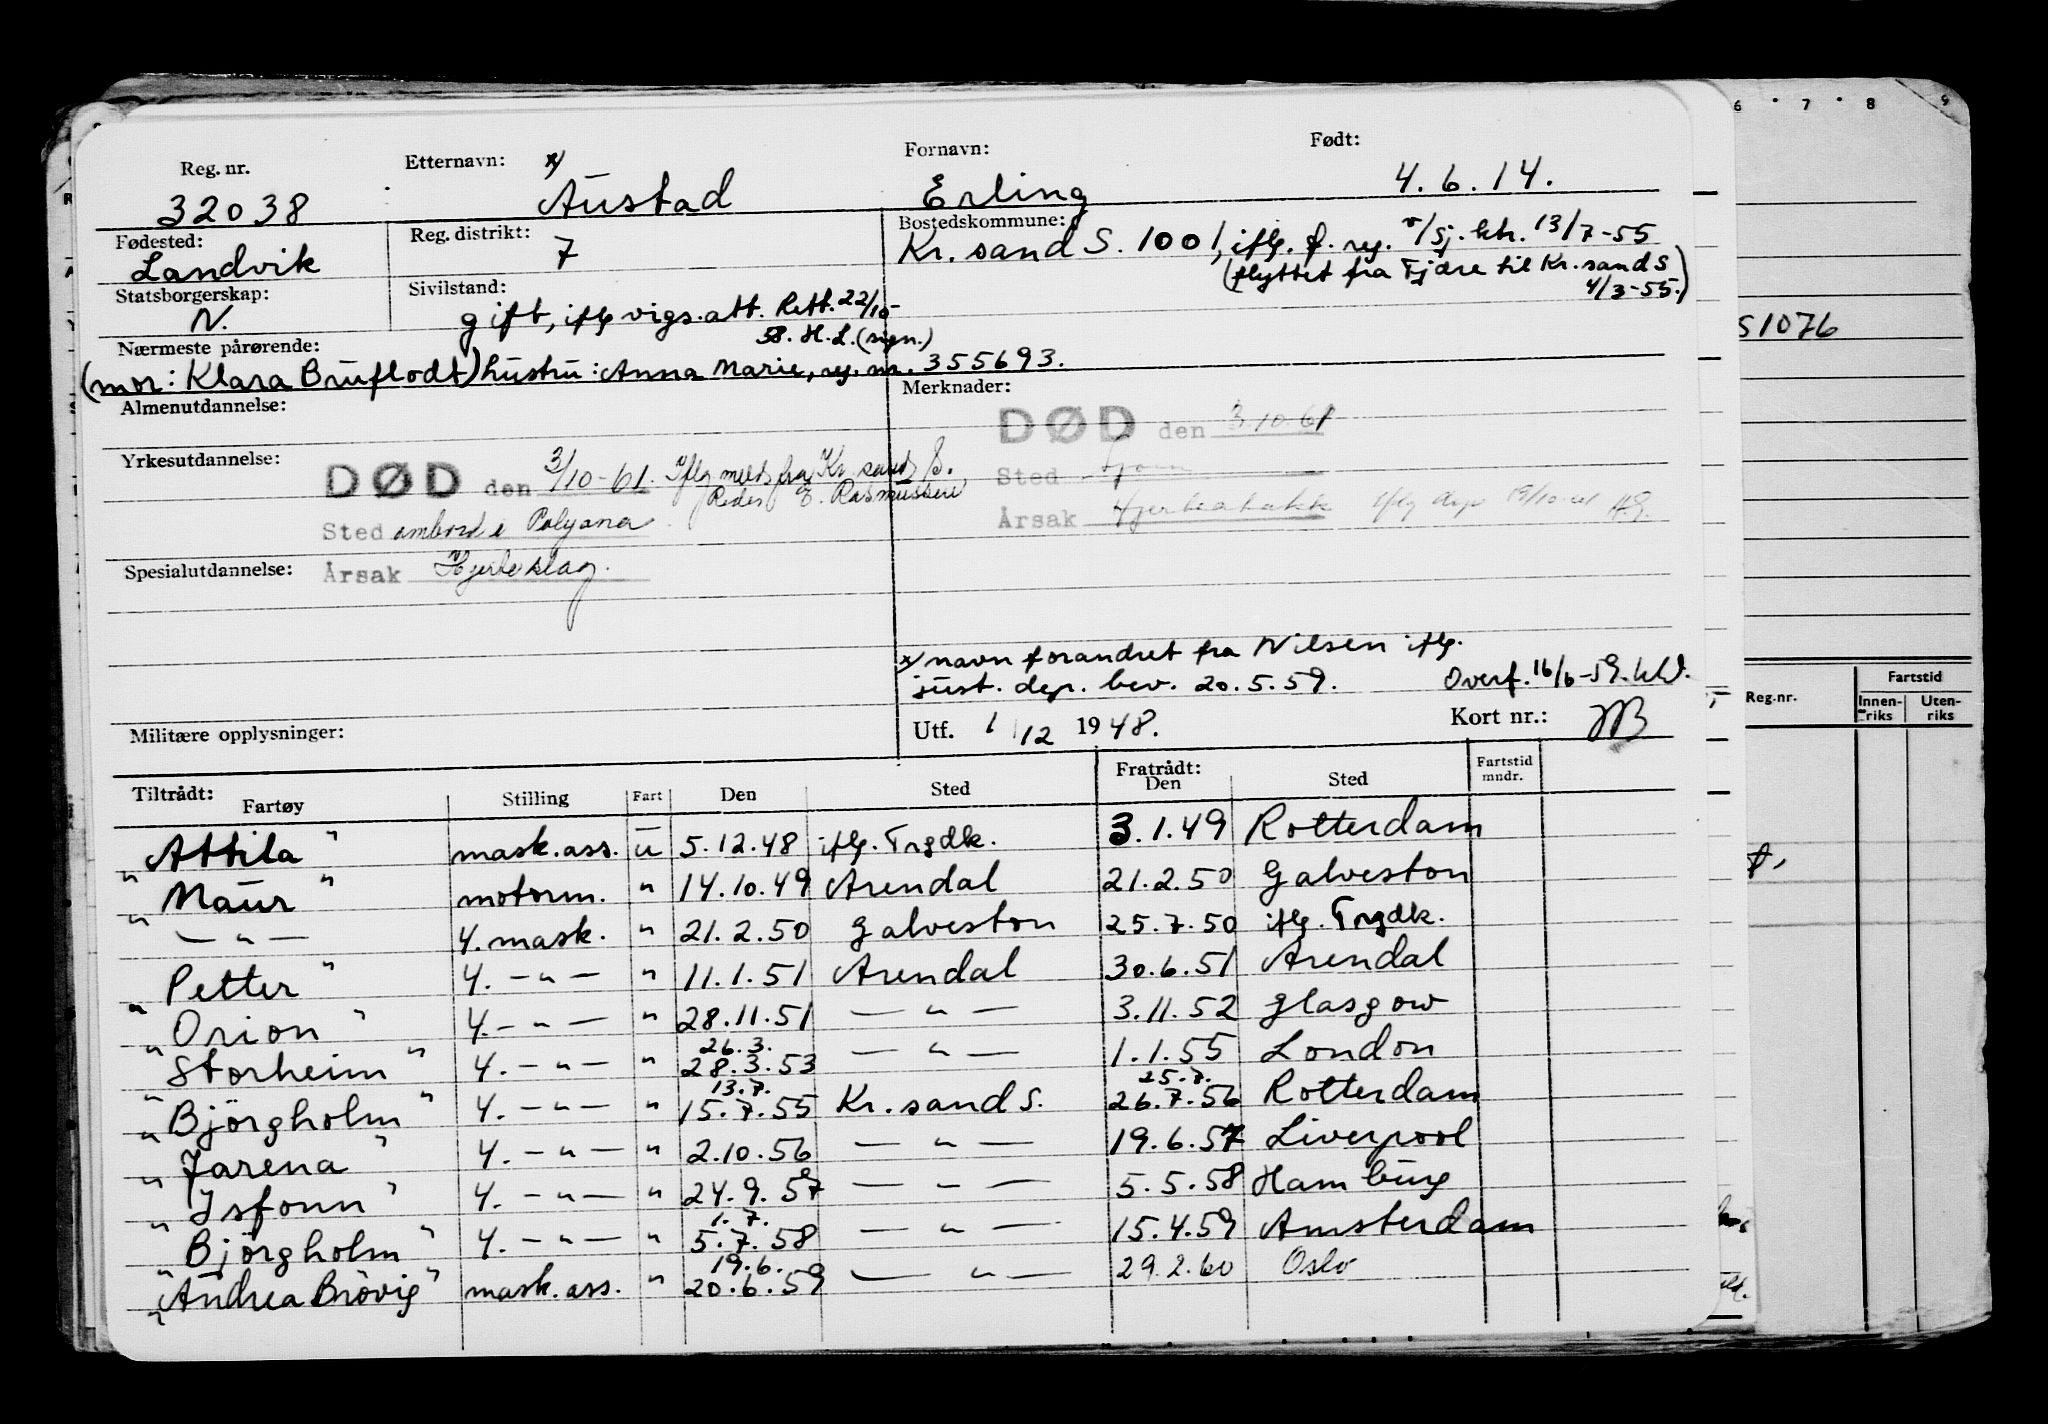 Reg. nr. Etternavn: x/ Fornavn: Født:
32038 Austad Erling 4.6.14.
Fødested: Reg. distrikt: Bostedskommune:
Landvik 7 Kr. sand S. 1001, iflg. f. reg. v/sj. ktr. 13/7-55
(flyttet fra Fjære til Kr. sand S
4/3-55.)
Statsborgerskap: Sivilstand:
N. gift, iflg vigs. att. Rett. 22/10-
58. H.L. (sign.)
Nærmeste pårørende:
(mor: Klara Bruflodt) hustru: Anna Marie, reg. nr. 355693.
Almenutdannelse: Merknader:
DØD den 3.10.61
Yrkesutdannelse:
DØD den 3/10-61. Iflg meld. fra Kr. sand S.
Reder E. Rasmussen
Sted
Sted ombord i Polyana
Årsak Hjerteattakk Iflg
Spesialutdannelse: Årsak Hjerteslag.
x/ navn forandret fra Nilsen iflg.
just. dep. bev. 20.5.59. Overf. 16/6-59.
Militære opplysninger: Utf. 1/12 1948. Kort nr.:
Tiltrådt: Fratrådt:
Fartøy Stilling Fart Den Sted Den Sted Fartstid mndr.
"Attila" mask. ass. u 5.12.48 iflg. Trgdk. 3.1.49 Rotterdam
"Maur" motorm. " 14.10.49 Arendal 21.2.50 Galveston
" — " — 4. mask. " 21.2.50 Galveston 25.7.50 iflg. Trgdk.
"Petter" 4. — " — " 11.1.51 Arendal 30.6.51 Arendal
"Orion" 4. — " — " 28.11.51 — " — 3.11.52 Glasgow
26.3.
"Storheim" 4. — " — " 28.3.53 — " — 1.1.55 London
13.7. 25.7.
"Björgholm" 4. — " — " 15.7.55 Kr. sand S. 26.7.56 Rotterdam
"Jarena" 4. — " — " 2.10.56 — " — 19.6.57 Liverpool
"Isfonn" 4. — " — " 24.9.57 — " — 5.5.58 Hamburg
1.7.
"Björgholm" 4. — " — " 5.7.58 — " — 15.4.59 Amsterdam
19.6.
"Andrea Brövig" mask. ass. " 20.6.59 — " — 29.2.60 Oslo
6 7 8 9
S1076
Reg.nr. Fartstid
Innen-riks Uten-riks